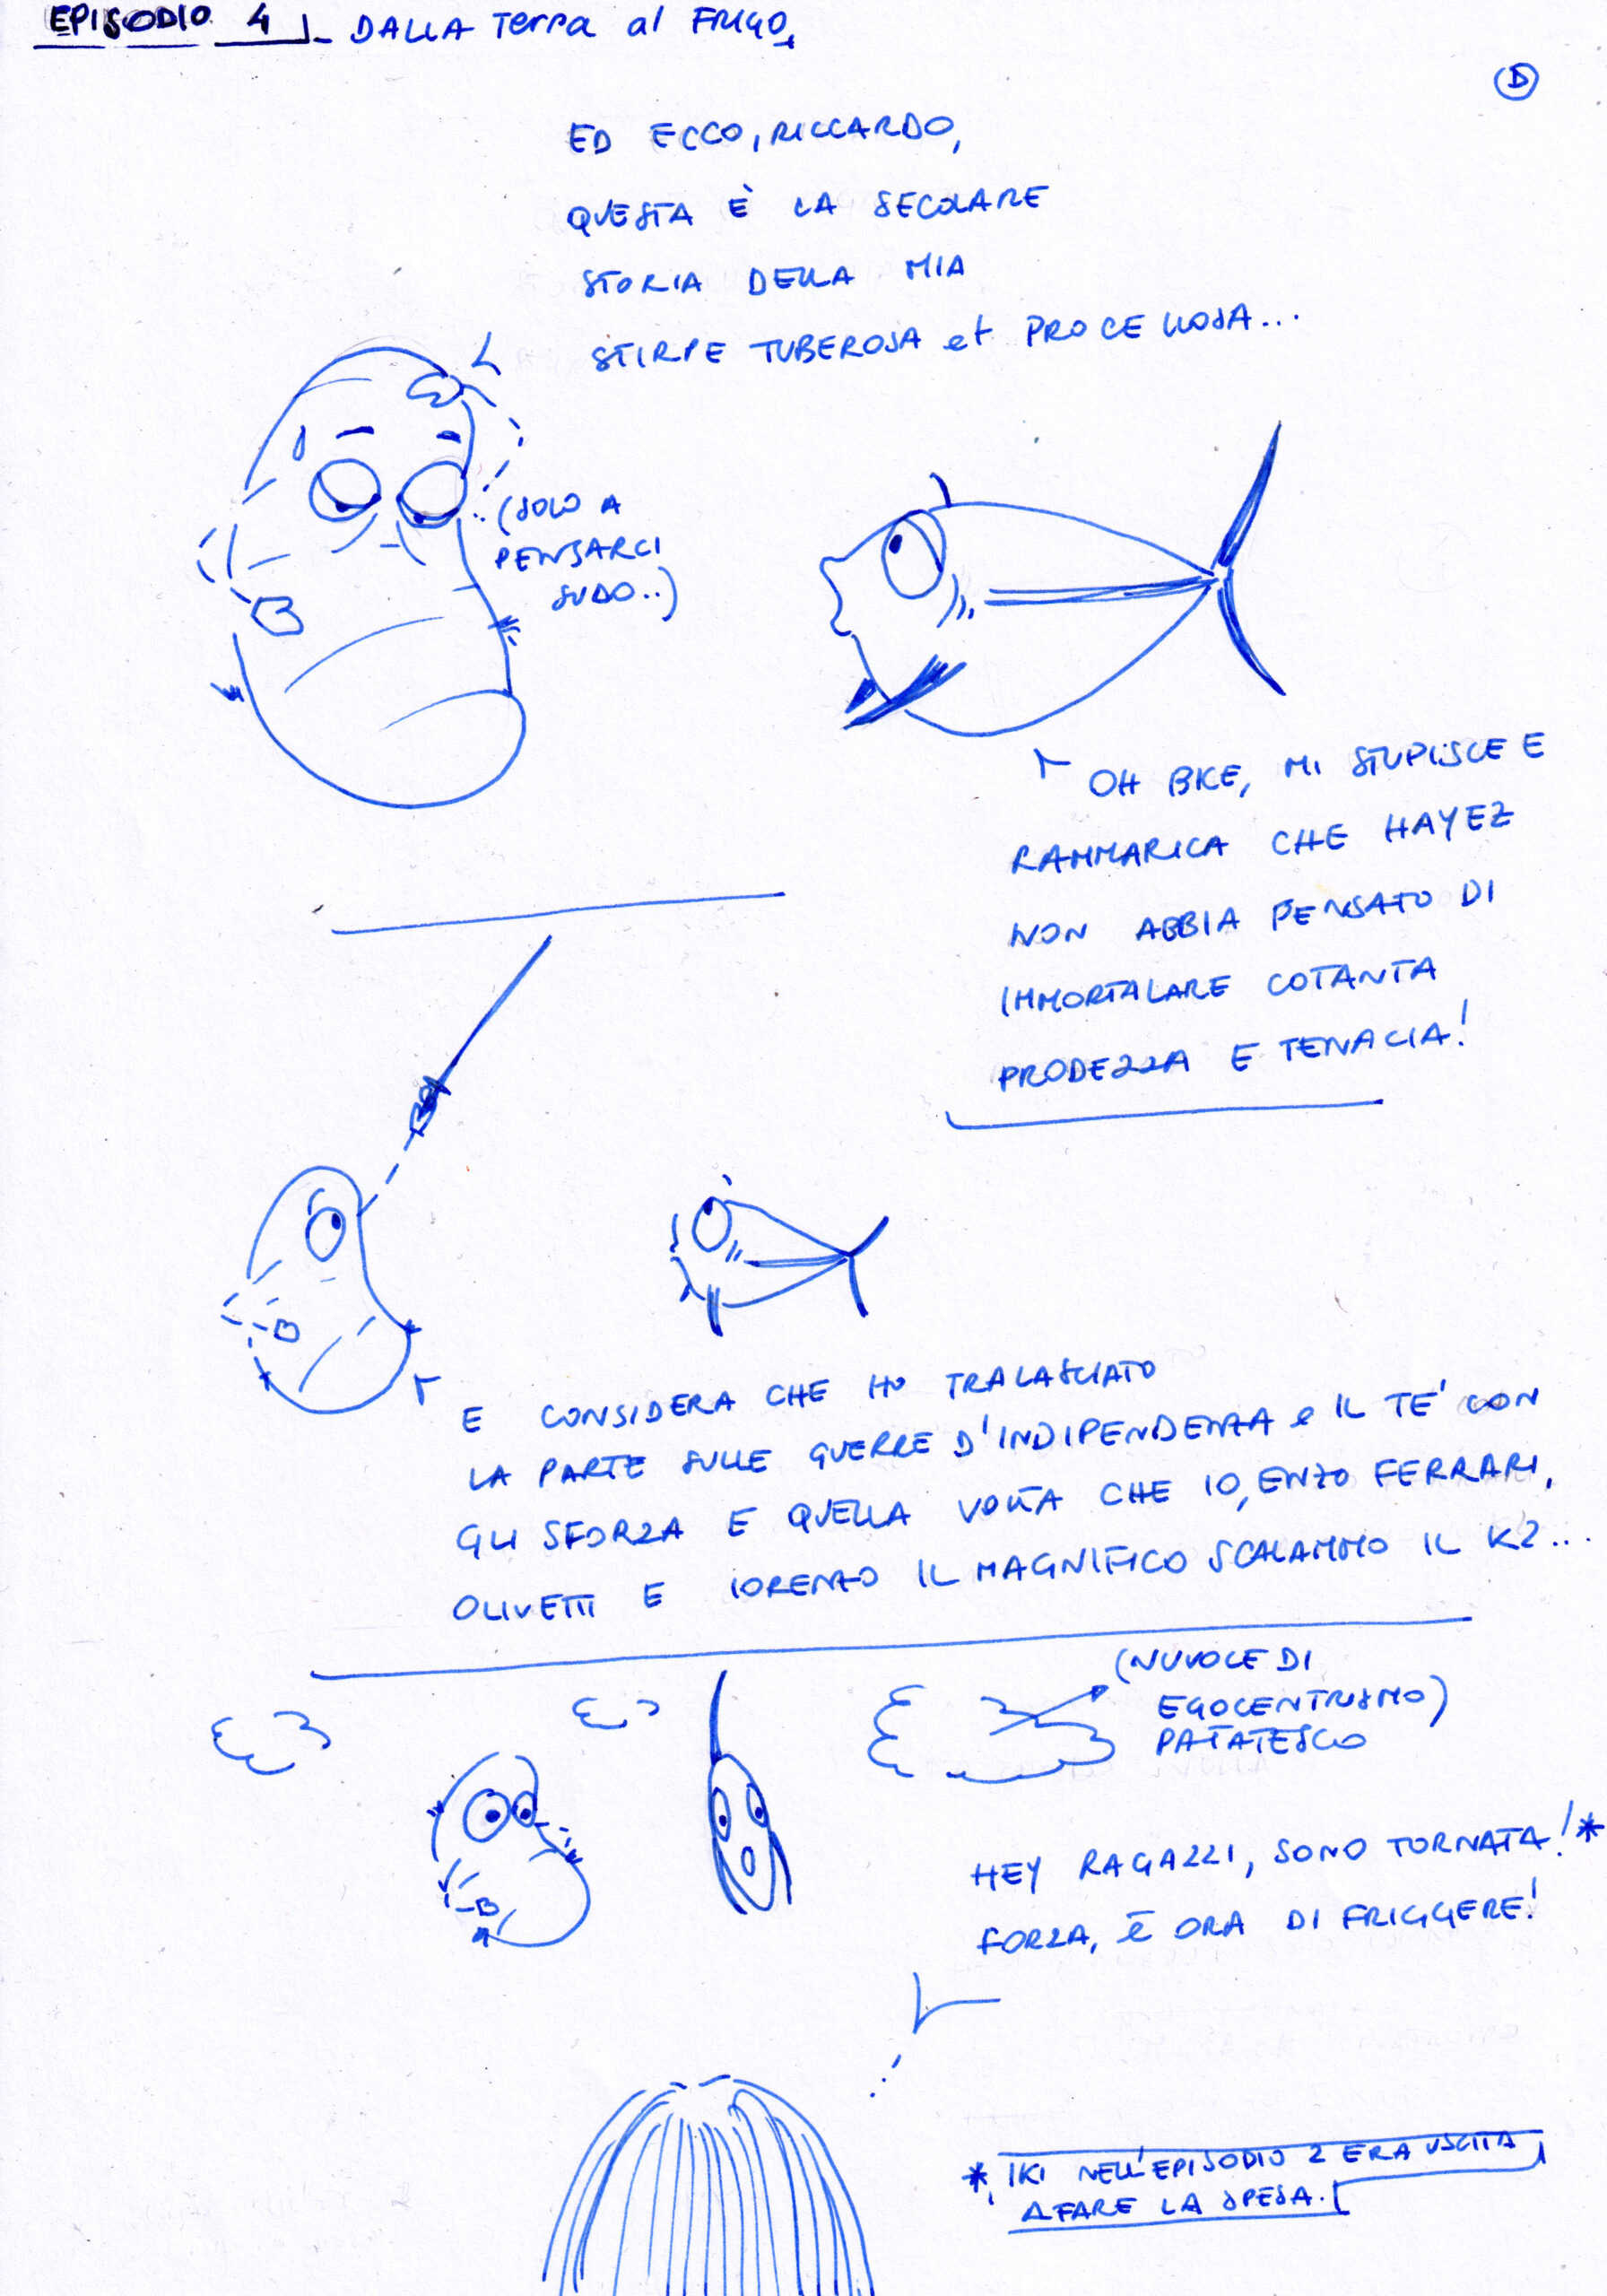 EPISODIO 4 DALLA Terra al FRIGO
D
ED ECCO, RICCARDO,
QUESTA È LA SECOLARE
STORIA DELLA MIA
STIRPE TUBEROSA et PROCELLOSA...
(SOLO A
PENSARCI
SUDO..)
OH BKE, MI STUPISCE E
RAMMARICA CHE HAYEZ
NON ABBIA PENSATO DI
IMMORTALARE COTANTA
PRODEZZA E TENACIA!
E CONSIDERA CHE HO TRALASCIATO
LA PARTE SULLE GUERRE D'INDIPENDENZA e IL TE' CON
GLI SFORZA E QUELLA VOLTA CHE IO, ENZO FERRARI,
OLIVETTI E LORENZO IL MAGNIFICO SCALAMMO IL K2...
(NUVOLE DI
EGOCENTRISMO)
PATATESCO
HEY RAGAZZI, SONO TORNATA!*
FORZA, È ORA DI FRIGGERE!
* IKI NELL'EPISODIO 2 ERA USCITA
A FARE LA SPESA.